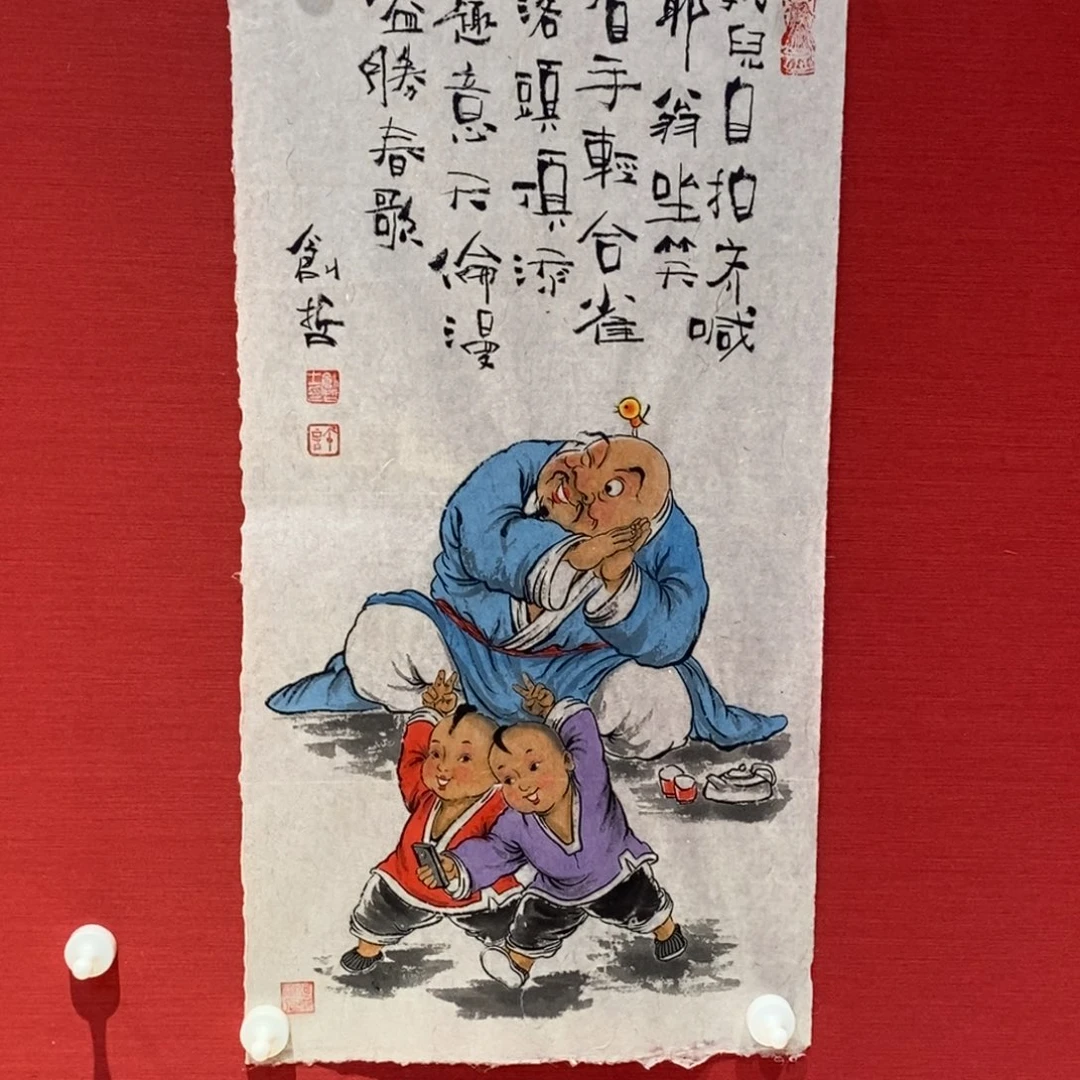 兒自拍齐喊
耶翁坐笑
看手輕合雀
落頭頂添
趣意天倫漫
溢勝春歌
創哲